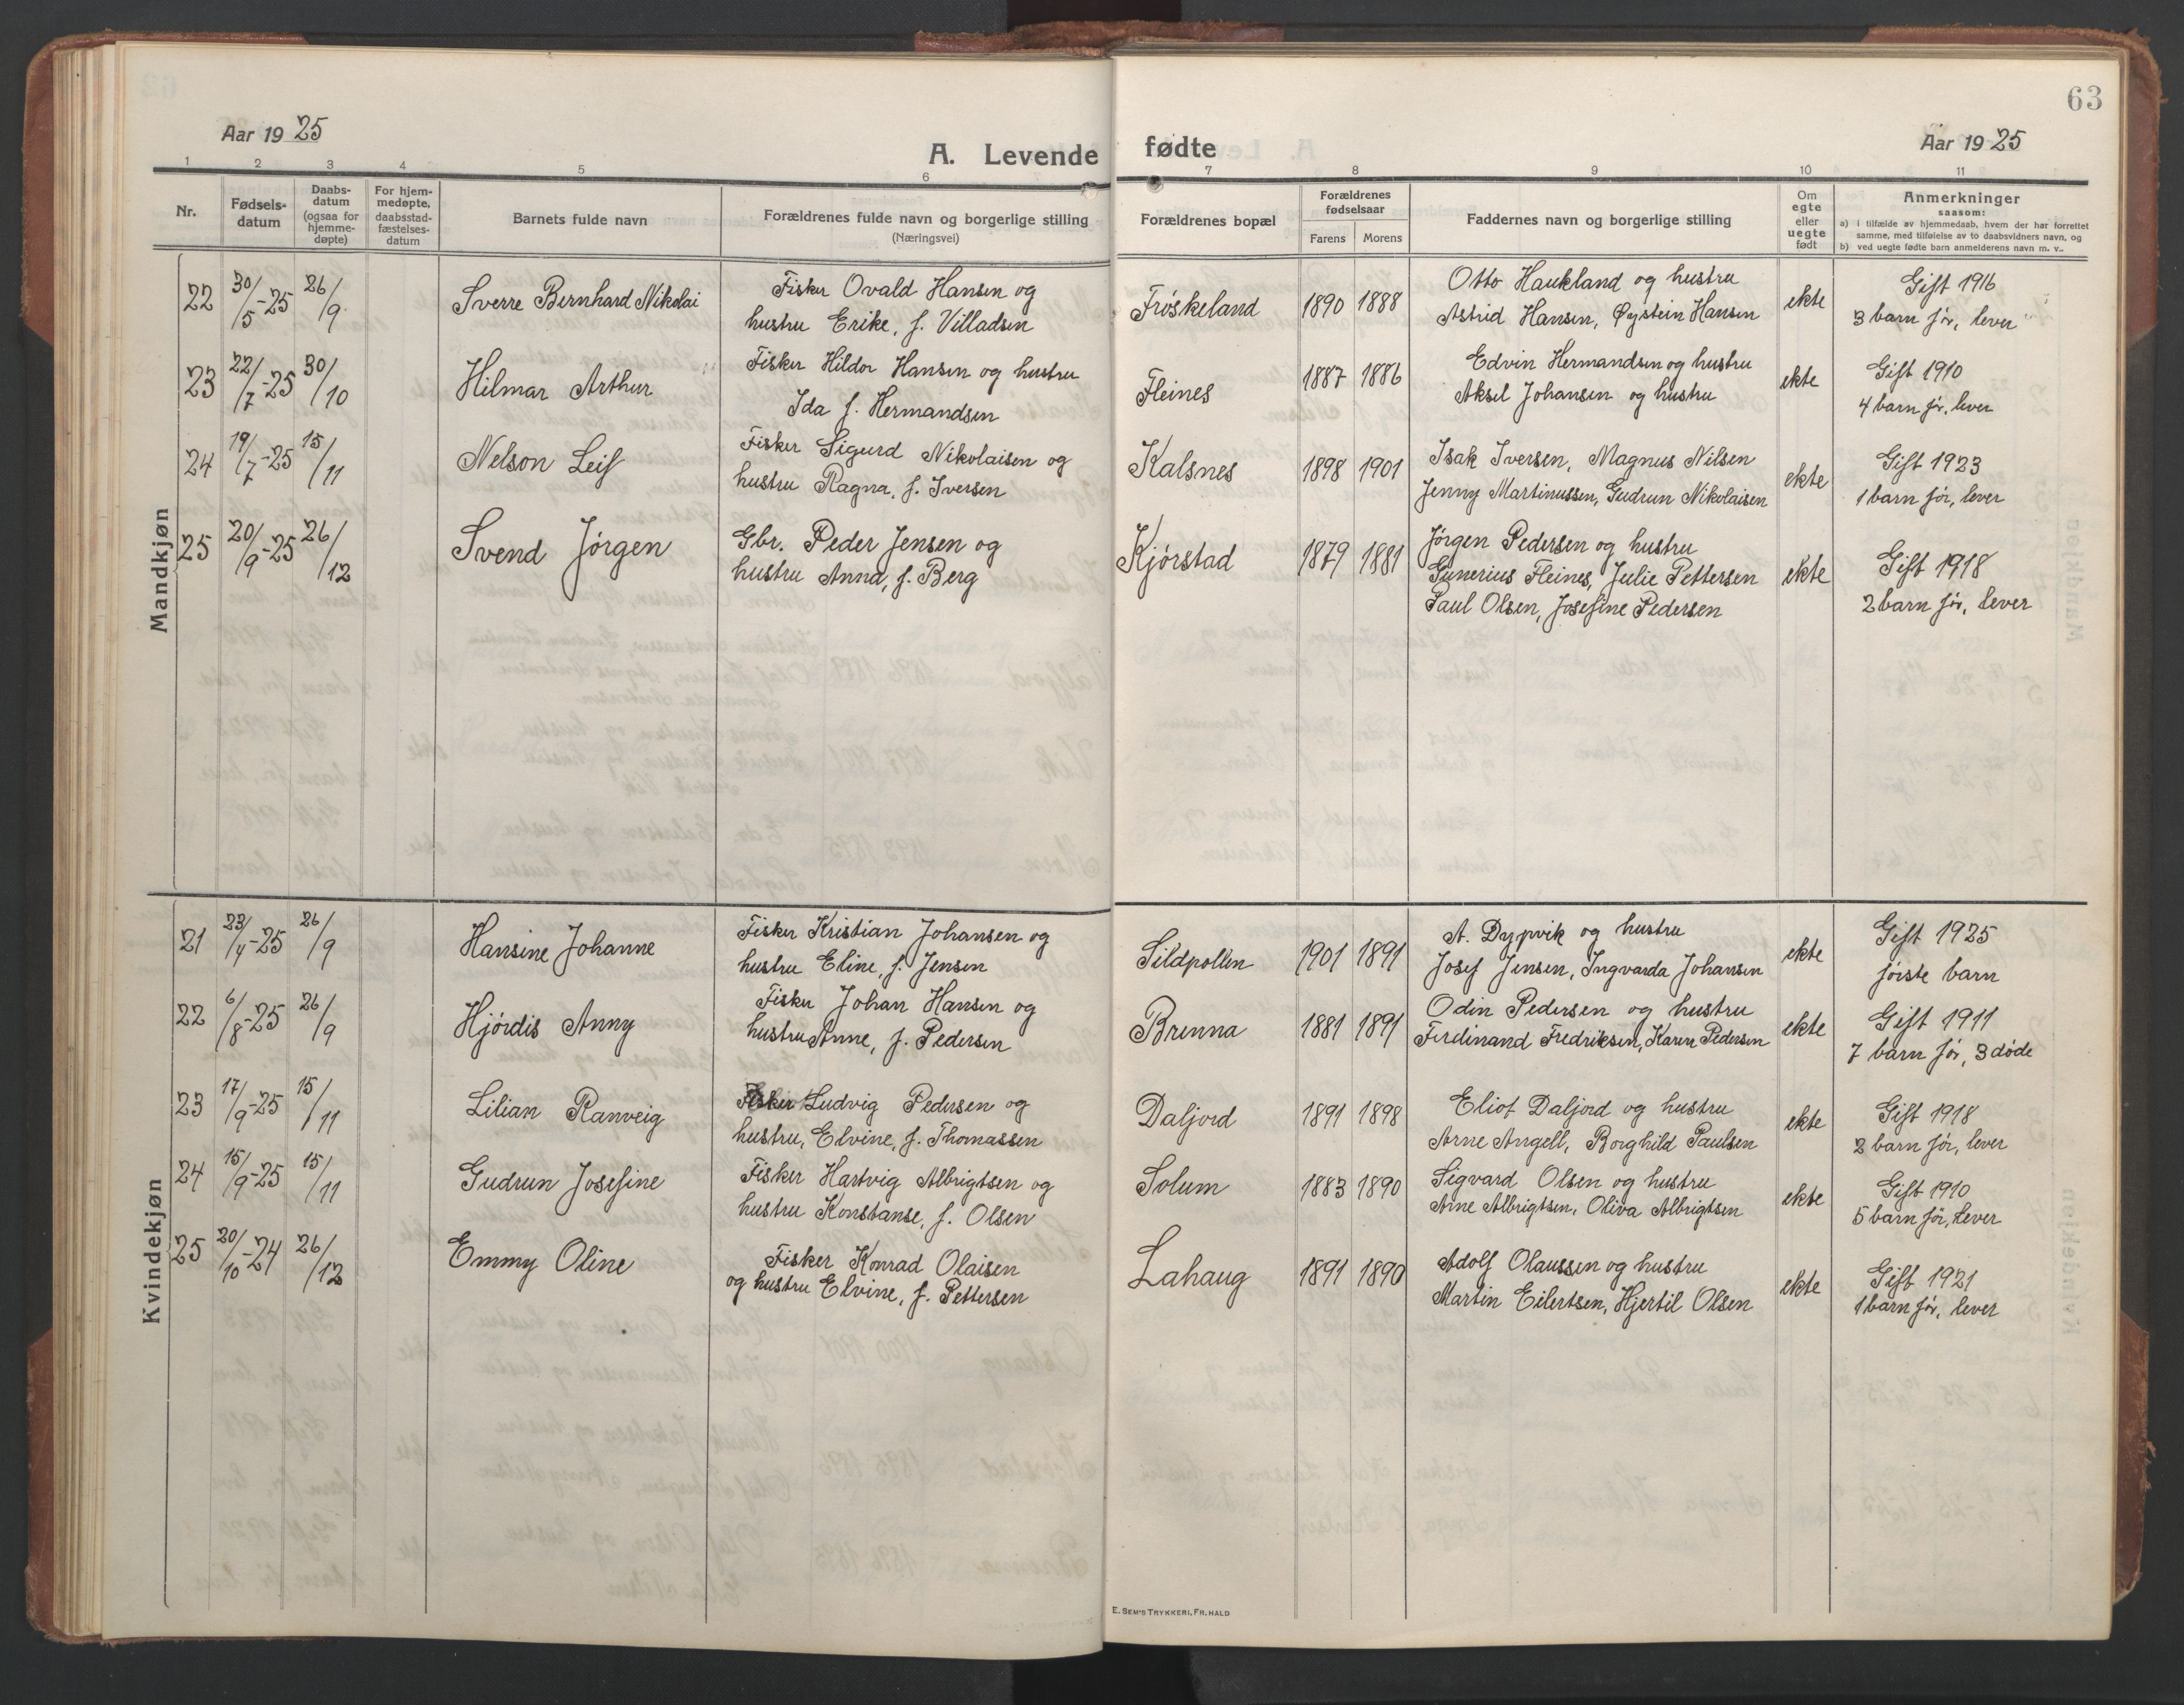 63
Aar 1925
A. Levende fødte
Aar 1925
1 2 3 4 5 6 7 8 9 10 11
Nr.
Fødsels-
datum
Daabs-
datum
(ogsaa for
hjemme-
døpte)
For hjem-
medøpte,
daabsstad-
fæstelses-
datum
Barnets fulde navn
Forældrenes fulde navn og borgerlige stilling
(Næringsvei)
Forældrenes bopæl
Forældrenes
fødselsaar
Farens Morens
Faddernes navn og borgerlige stilling
Om
egte
eller
uegte
født
Anmerkninger
saasom:
a) i tilfælde av hjemmedaab, hvem der har forrettet
samme, med tilføielse av to daabsvidners navn, og
b) ved uegte fødte barn anmelderens navn m. v..
Mandkjøn
22 30/5-25 26/9 Sverre Bernhard Nikolai Fisker Ovald Hansen og Frøskeland 1890 1888 Otto Haukland og hustru ekte Gift 1916
hustru Erike, f. Villadsen Astrid Hansen, Øystein Hansen 3 barn før, lever
23 22/7-25 30/10 Hilmar Arthur Fisker Hildor Hansen og hustru Fleines 1887 1886 Edvin Hermandsen og hustru ekte Gift 1910
Ida f. Hermandsen Aksel Johansen og hustru 4 barn før, lever
24 19/7-25 15/11 Nelson Leif Fisker Sigurd Nikolaisen og Kalsnes 1898 1901 Isak Iversen, Magnus Nilsen ekte Gift 1923
hustru Ragna, f. Iversen Jenny Martinussen, Gudrun Nikolaisen 1 barn før, lever
25 20/9-25 26/12 Svend Jørgen Gbr. Peder Jensen og Kjørstad 1879 1881 Jørgen Pedersen og hustru ekte Gift 1918
hustru Anna, f. Berg Gunerius Fleines, Julie Pettersen 2 barn før, lever
Paul Olsen, Josefine Pedersen
Kvindekjøn
21 23/4-25 26/9 Hansine Johanne Fisker Kristian Johansen og Sildpollen 1901 1891 A. Dypvik og hustru ekte Gift 1925
hustru Eline, f. Jensen Josef Jensen, Ingvarda Johansen første barn
22 6/8-25 26/9 Hjørdis Anny Fisker Johan Hansen og Brenna 1881 1891 Odin Pedersen og hustru ekte Gift 1911
hustru Anne, f. Pedersen Ferdinand Fredriksen, Karen Pedersen 7 barn før, 3 døde
23 17/9-25 15/11 Lilian Ranveig Fisker Ludvig Pedersen og Daljord 1891 1898 Eliot Daljord og hustru ekte Gift 1918
hustru, Elvine, f. Thomassen Arne Angell, Borghild Paulsen 2 barn før, lever
24 15/9-25 15/11 Gudrun Josefine Fisker Hartvig Albrigtsen og Solum 1883 1890 Sigvard Olsen og hustru ekte Gift 1910
hustru Konstanse, f. Olsen Arne Albrigtsen, Oliva Albrigtsen 5 barn før, lever
25 20/10-24 26/12 Emmy Oline Fisker Konrad Olaisen Lahaug 1891 1890 Adolf Olaussen og hustru ekte Gift 1921
og hustru Elvine, f. Pettersen Martin Eilertsen, Hjertil Olsen 1 barn før, lever
E. SEM'S TRYKKERI, FR.HALD